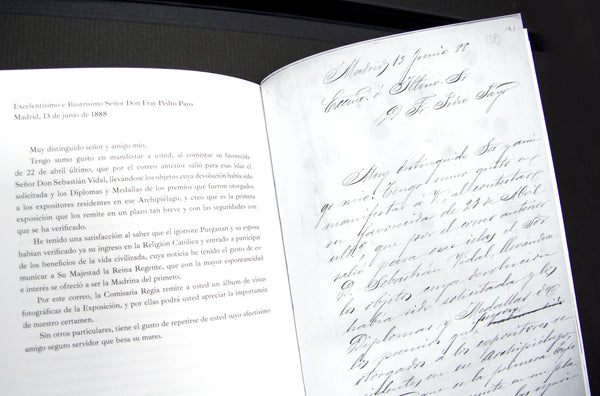 Excelentísimo e Ilustrísimo Señor Don Fray Pedro Payo
Madrid, 13 de junio de 1888
Muy distinguido señor y amigo mio,
Tengo sumo gusto en manifestar a usted, al contestar su favorecida
de 22 de abril último, que por el correo anterior salió para esas islas el
Señor Don Sebastián Vidal, llevándose los objetos cuya devolución había sido
solicitada y los Diplomas y Medallas de los premios que fueron otorgados
a los expositores residentes en ese Archipiélago, y creo que es la primera
exposición que los remite en un plazo tan breve y con las seguridades con
que se ha verificado.
He tenido una satisfacción al saber que el igorrote Purganan y su esposa
habían verificado ya su ingreso en la Religión Católica y entrado a participar
de los beneficios de la vida civilizada, cuya noticia he tenido el gusto de co-
municar a Su Majestad la Reina Regente, que con la mayor espontaneidad
e interés se ofreció a ser la Madrina del primero.
Por este correo, la Comisaria Regia remite a usted un álbum de vistas
fotográficas de la Exposición, y por ellas podrá usted apreciar la importancia
de nuestro certamen.
Sin otros particulares, tiene el gusto de repetirse de usted suyo afectísimo
amigo seguro servidor que besa su mano.
Madrid 13 Junio 88
Excmo. é Iltmo. Sr
D. Fr. Pedro Payo
Muy distinguido Sr. y ami
go mio: Tengo sumo gusto en
manifestar a V., al contestar
su favorecida de 22 de Abril
último, que por el correo anterior
salió para esas islas el Sor
D. Sebastian Vidal llevándose
los objetos cuya devolucion
habia sido solicitada y los
Diplomas y Medallas de
los premios que fueron
otorgados a los expositores re
sidentes en ese Archipiélago,
que es la primera Expo